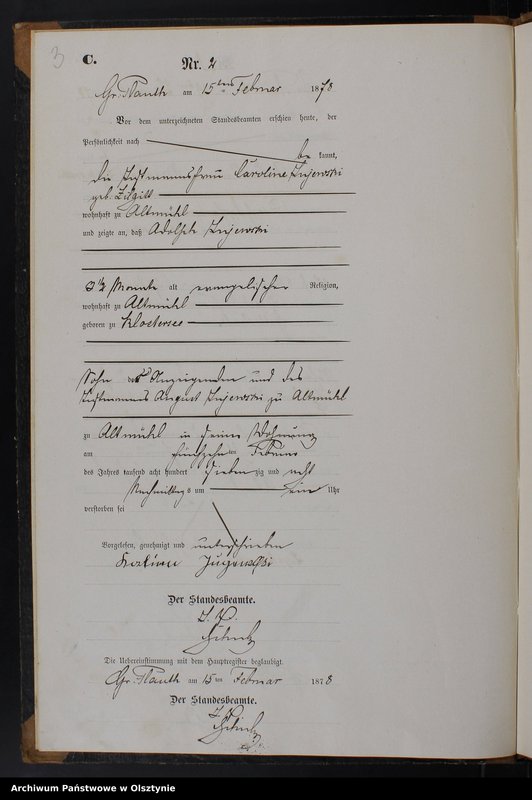 3
C.
Nr. 2
Gr. Plauth am 15ten Februar 1878
Vor dem unterzeichneten Standesbeamten erschien heute, der
Persönlichkeit nach
be kannt,
die Instmannsfrau Caroline
geb.
wohnhaft zu Altmühl
und zeigte an, daß Adolph
3 1/2 Monate alt evangelischer Religion,
wohnhaft zu Altmühl
geboren zu Klostersee
Sohn der Anzeigenden und des
Instmannes August zu Altmühl
zu Altmühl in seiner Wohnung
am fünfzehnten Februar
des Jahres tausend acht hundert sieben zig und acht
Nachmittags um ein Uhr
verstorben sei
Vorgelesen, genehmigt und unterschrieben
Der Standesbeamte.
Die Uebereinstimmung mit dem Hauptregister beglaubigt.
Gr. Plauth am 15ten Februar 1878
Der Standesbeamte.
Archiwum Państwowe w Olsztynie